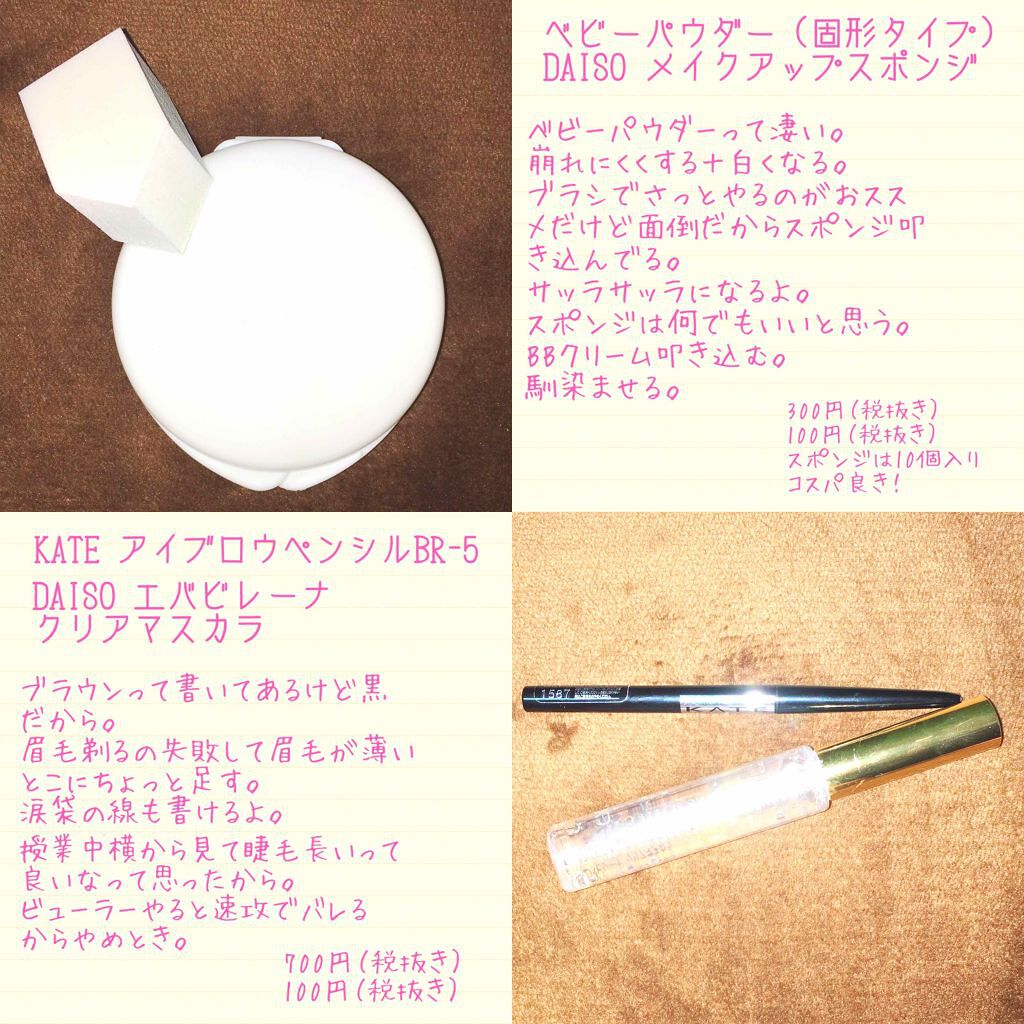 ベビーパウダー（固形タイプ）
DAISO メイクアップスポンジ
ベビーパウダーって凄い。
崩れにくくする＋白くなる。
ブラシでさっとやるのがおスス
メだけど面倒だからスポンジ叩
き込んでる。
サッラサッラになるよ。
スポンジは何でもいいと思う。
BBクリーム叩き込む。
馴染ませる。
300円（税抜き）
100円（税抜き）
スポンジは10個入り
コスパ良き！
KATE アイブロウペンシルBR-5
DAISO エバビレーナ
クリアマスカラ
ブラウンって書いてあるけど黒
だから。
眉毛剃るの失敗して眉毛が薄い
とこにちょっと足す。
涙袋の線も書けるよ。
授業中横から見て睫毛長いって
良いなって思ったから。
ビューラーやると速攻でバレる
からやめとき。
700円（税抜き）
100円（税抜き）
1567
KATE